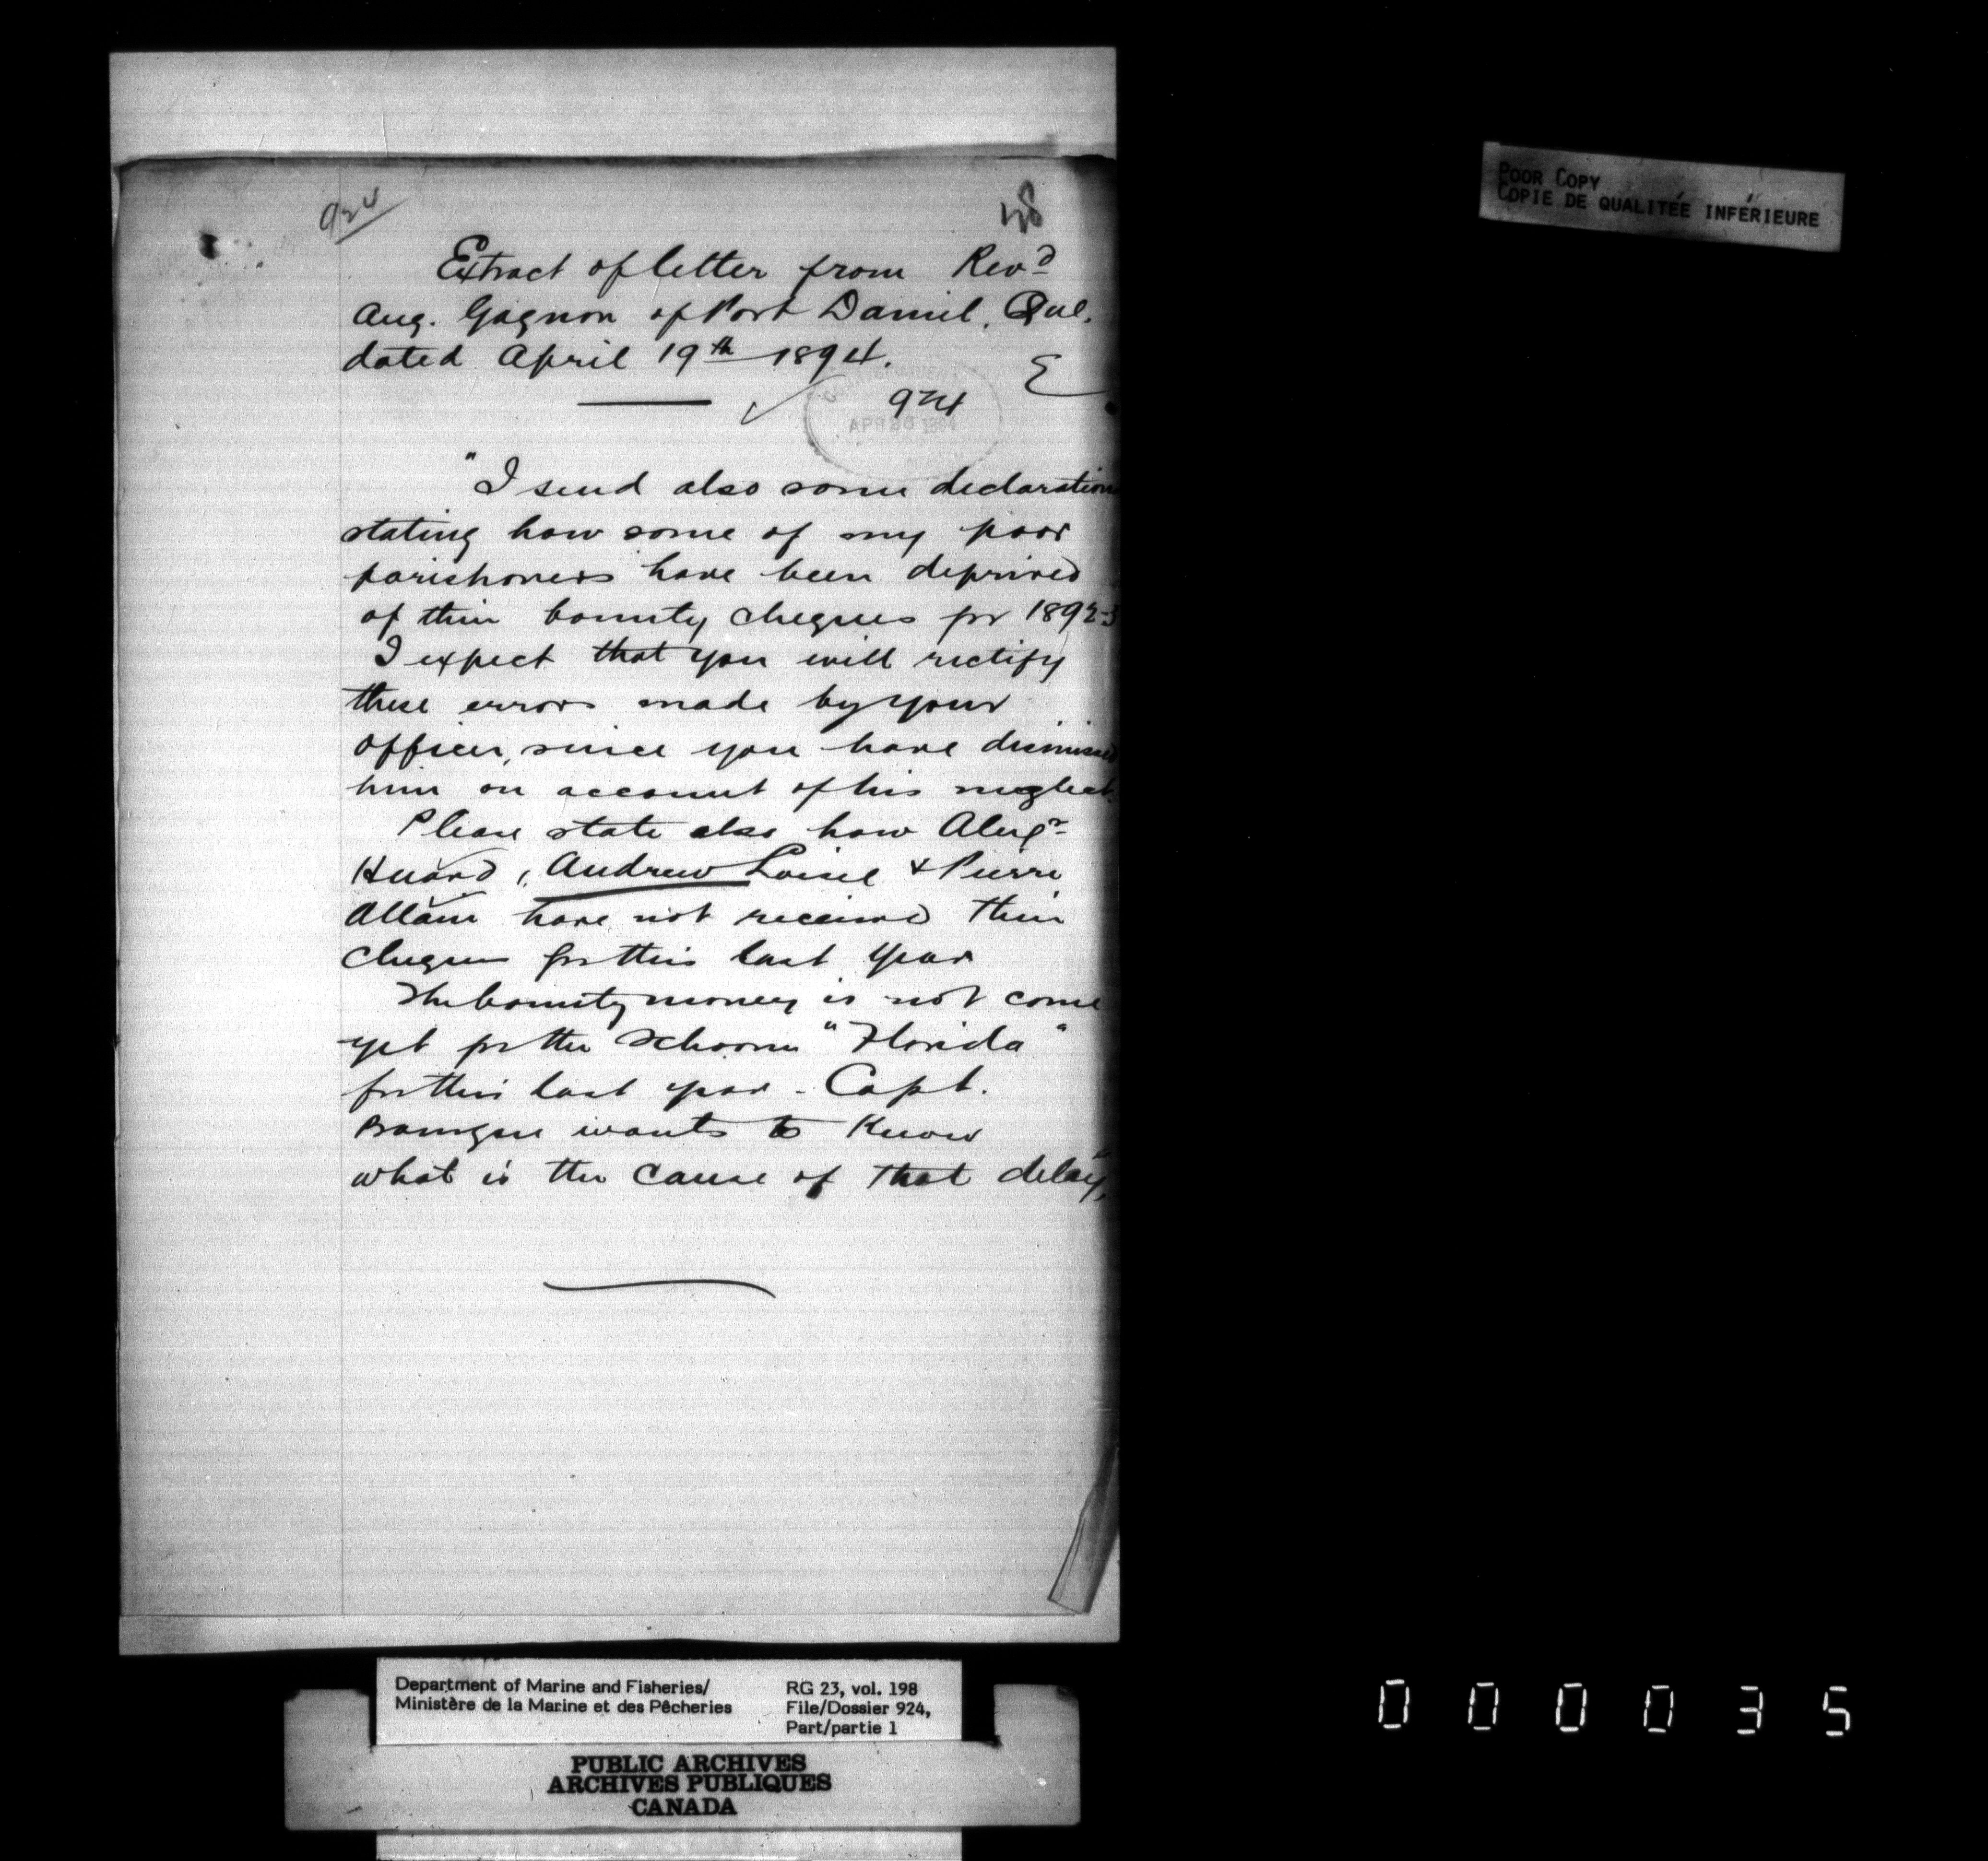 924
48
POOR COPY
COPIE DE QUALITÉE INFÉRIEURE
Extract of letter from Revd
Aug. Gagnon of Port Daniel, Que.
dated April 19th 1894.
924
APR 26 1894
"I send also some declaration
stating how some of my poor
parishoners have been deprived
of their bounty cheques for 1892-3
I expect that you will rectify
these errors made by your
officer, since you have dismissed
him on account of his neglect.
Please state also how Alexr
Huard, Andrew Loisel & Pierre
Allain have not received their
cheques for this last year
The bounty money is not come
yet for the Schooner "Florida"
for this last year - Capt.
wants to know
what is the cause of that delay,"
Department of Marine and Fisheries/
Ministère de la Marine et des Pêcheries
RG 23, vol. 198
File/Dossier 924,
Part/partie 1
PUBLIC ARCHIVES
ARCHIVES PUBLIQUES
CANADA
000035